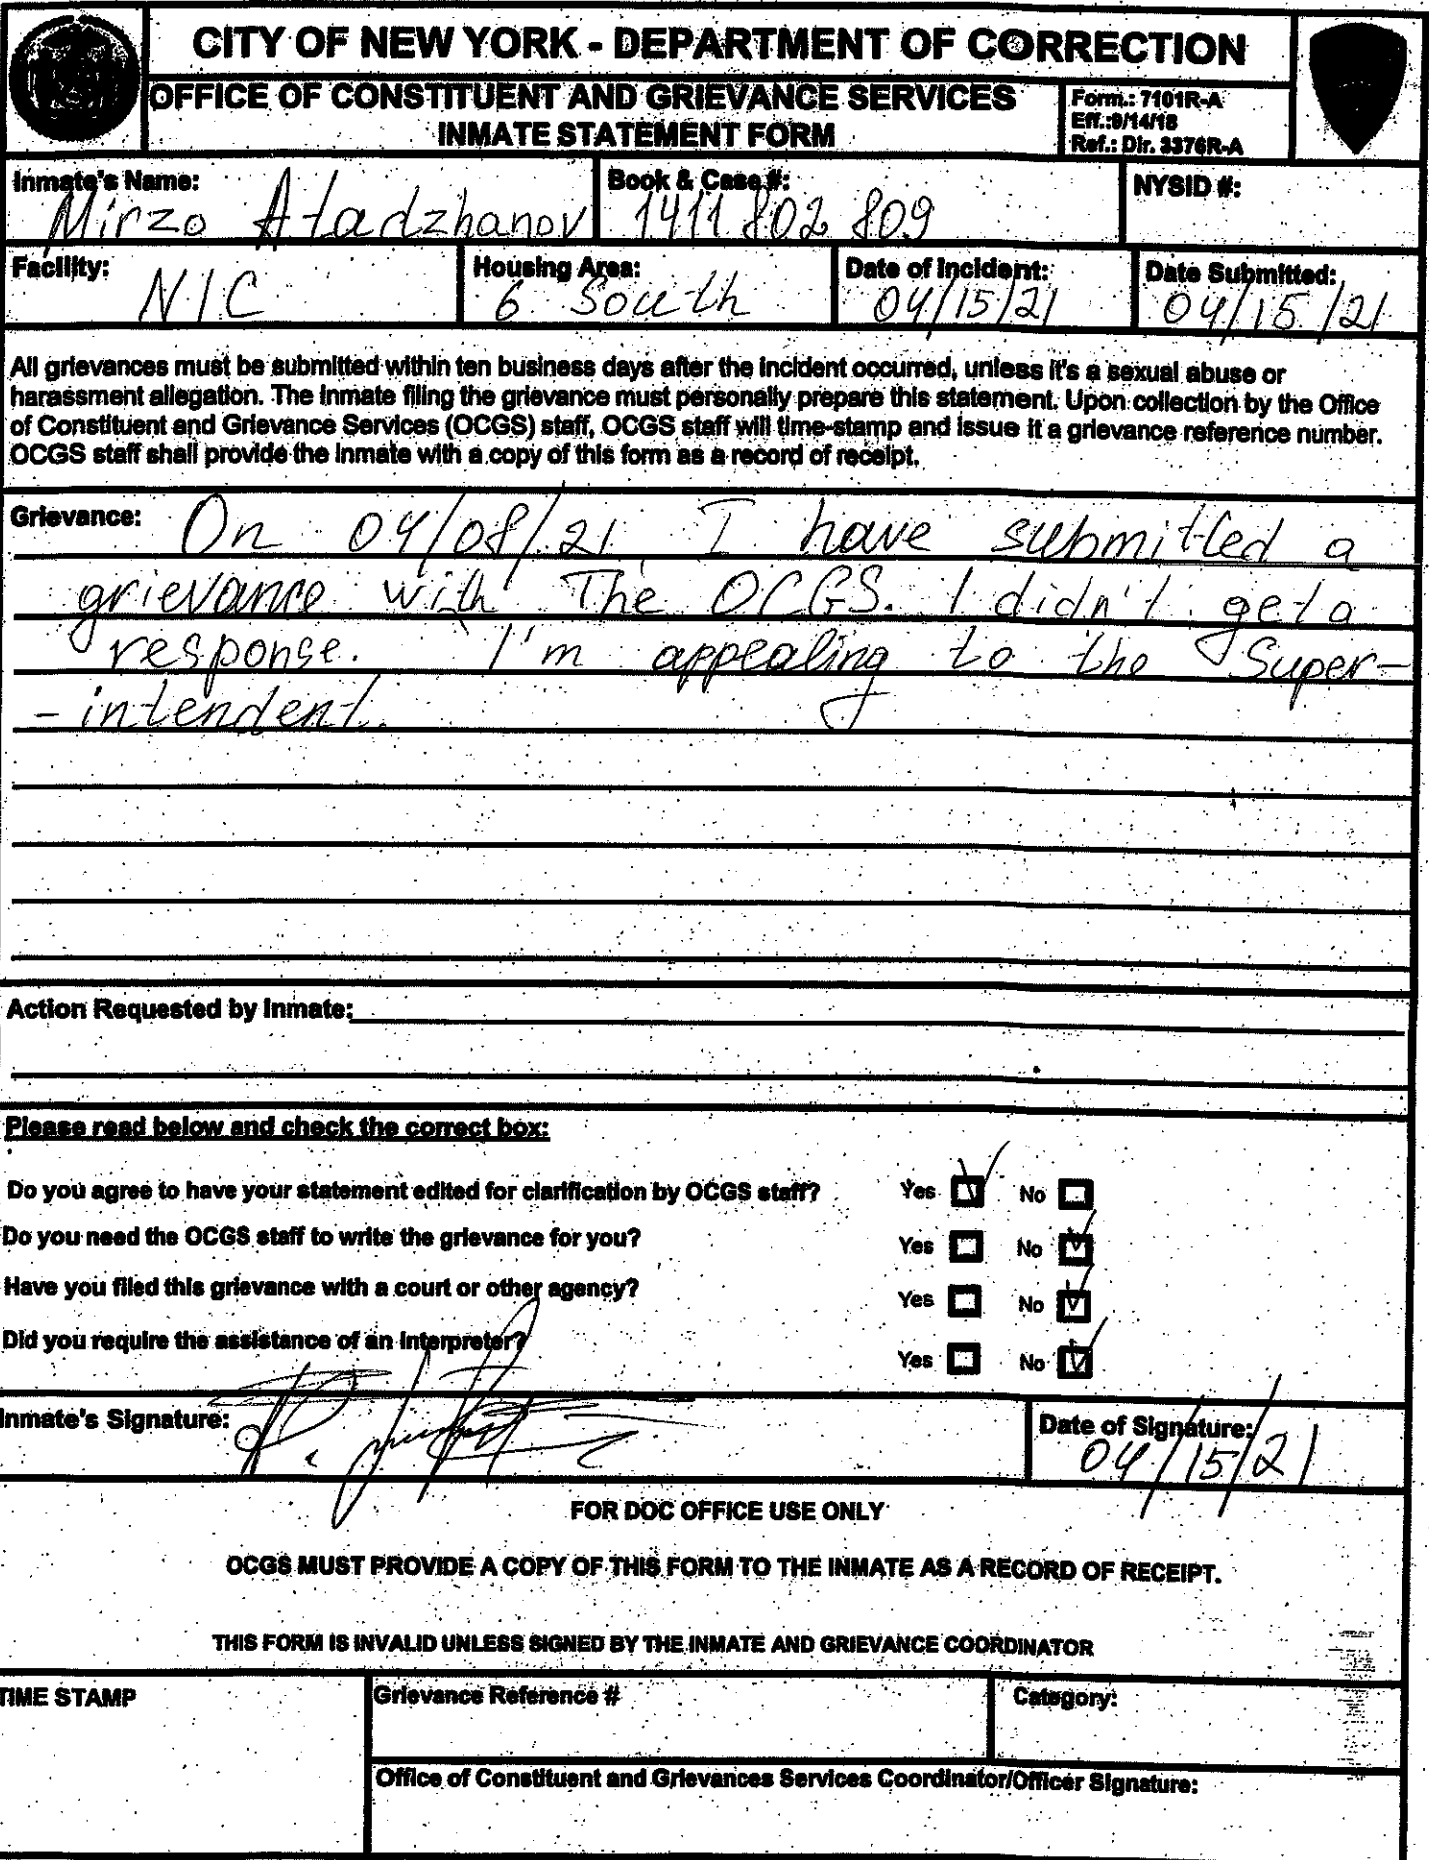 CITY OF NEW YORK - DEPARTMENT OF CORRECTION
OFFICE OF CONSTITUENT AND GRIEVANCE SERVICES
INMATE STATEMENT FORM
Form.: 7101R-A
Eff.:9/14/18
Ref.: Dir. 3376R-A
Inmate's Name:
Mirzo Atadzhanov
Book & Case #:
1411802809
NYSID #:
Facility:
NIC
Housing Area:
6 South
Date of Incident:
04/15/21
Date Submitted:
04/15/21
All grievances must be submitted within ten business days after the incident occurred, unless it's a sexual abuse or
harassment allegation. The inmate filing the grievance must personally prepare this statement. Upon collection by the Office
of Constituent and Grievance Services (OCGS) staff, OCGS staff will time-stamp and issue it a grievance reference number.
OCGS staff shall provide the inmate with a copy of this form as a record of receipt.
Grievance: On 04/08/21 I have submitted a
grievance with The OCGS. I didn't get a
response. I'm appealing to the Super-
-intendent.
Action Requested by Inmate:
Please read below and check the correct box:
Do you agree to have your statement edited for clarification by OCGS staff? Yes No
Do you need the OCGS staff to write the grievance for you? Yes No
Have you filed this grievance with a court or other agency? Yes No
Did you require the assistance of an interpreter? Yes No
Inmate's Signature:
Date of Signature:
04/15/21
FOR DOC OFFICE USE ONLY
OCGS MUST PROVIDE A COPY OF THIS FORM TO THE INMATE AS A RECORD OF RECEIPT.
THIS FORM IS INVALID UNLESS SIGNED BY THE INMATE AND GRIEVANCE COORDINATOR
TIME STAMP
Grievance Reference #
Category:
Office of Constituent and Grievances Services Coordinator/Officer Signature: